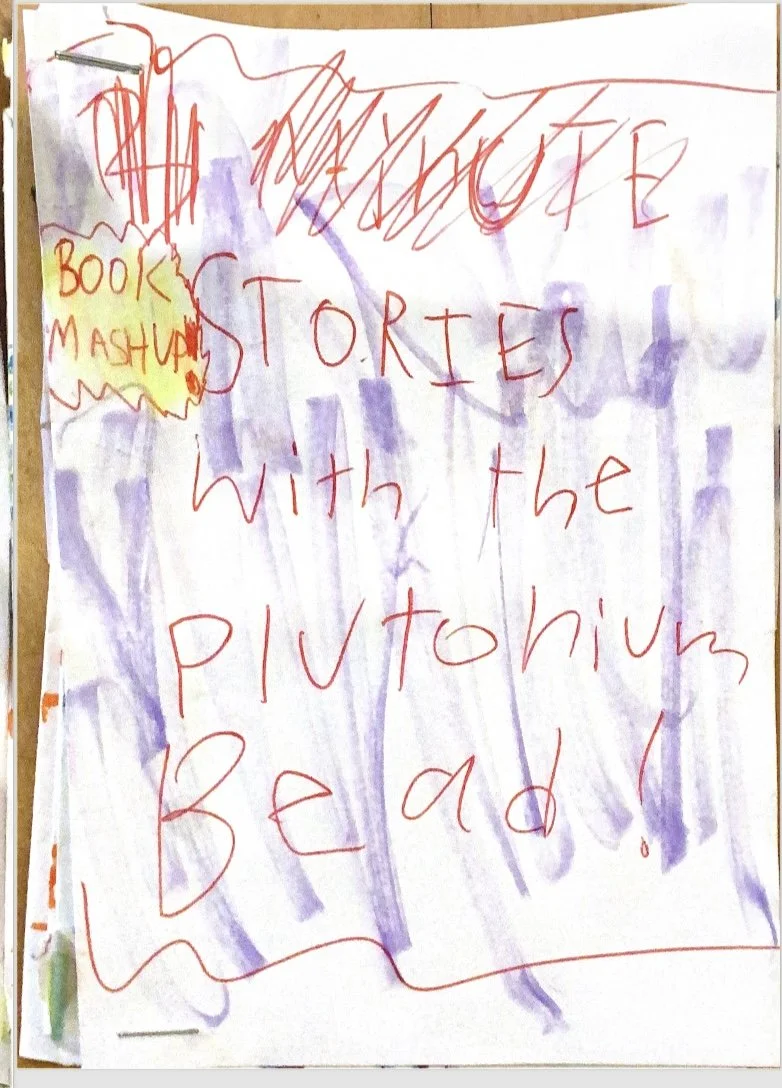 MINUTE
BOOK
MASHUP!
STORIES
with the
Plutonium
Bead!